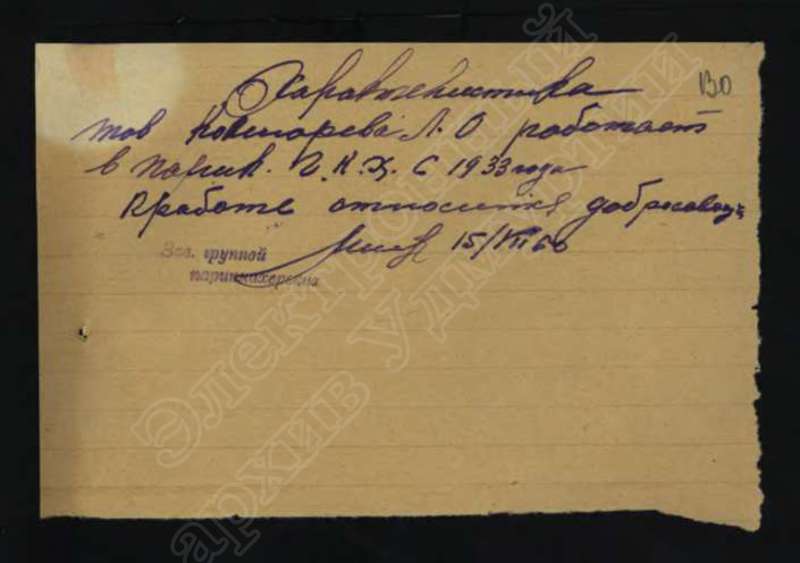 Характеристика
130
тов Кошкарева Л. О работает
в парик. Г. К. Х. с 1933 года
К работе относится добросовест
15/VII 66
Зав. группой
парикмахерских
Электронный
архив Удмуртии